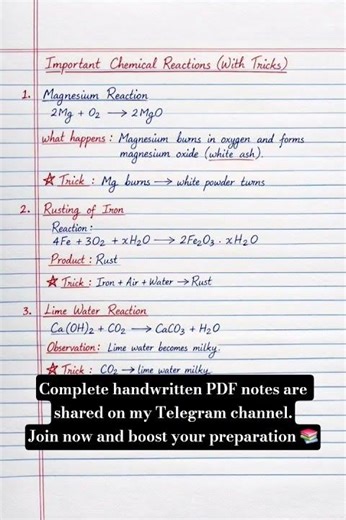 Important Chemical Reactions (With Tricks)
1. Magnesium Reaction
2Mg + O₂ → 2MgO
what happens : Magnesium burns in oxygen and forms
magnesium oxide (white ash).
☆ Trick : Mg burns → white powder turns
2. Rusting of Iron
Reaction :
4Fe + 3O₂ + xH₂O → 2Fe₂O₃ . xH₂O
Product : Rust
☆ Trick : Iron + Air + Water → Rust
3. Lime Water Reaction
Ca(OH)₂ + CO₂ → CaCO₃ + H₂O
Observation : Lime water becomes milky.
☆ Trick : CO₂ → lime water milky
Complete handwritten PDF notes are
shared on my Telegram channel.
Join now and boost your preparation 📚